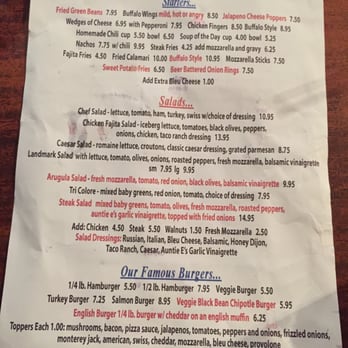 Starters...
Fried Green Beans 7.95 Buffalo Wings mild, hot or angry 8.50 Jalapeno Cheese Poppers 7.50
Wedges of Cheese 6.95 with Pepperoni 7.95 Chicken Fingers 8.50 Buffalo Style 8.95
Homemade Chili cup 5.50 bowl 6.50 Soup of the Day cup 4.00 bowl 5.25
Nachos 7.75 w/ chili 9.95 Steak Fries 4.25 add mozzarella and gravy 6.25
Fajita Fries 4.50 Fried Calamari 10.00 Buffalo Style 10.95 Mozzarella Sticks 7.50
Sweet Potato Fries 6.50 Beer Battered Onion Rings 7.50
Add Extra Bleu Cheese 1.00
Salads...
Chef Salad - lettuce, tomato, ham, turkey, swiss w/choice of dressing 10.95
Chicken Fajita Salad - iceberg lettuce, tomatoes, black olives, peppers,
onions, chicken, taco ranch dressing 13.95
Caesar Salad - romaine lettuce, croutons, classic caesar dressing, grated parmesan 8.75
Landmark Salad with lettuce, tomato, olives, onions, roasted peppers, fresh mozzarella, balsamic vinaigrette
sm 7.95 lg 9.95
Arugula Salad - fresh mozzarella, tomato, red onion, black olives, balsamic vinaigrette 9.95
Tri Colore - mixed baby greens, red onion, tomato, choice of dressing 7.95
Steak Salad mixed baby greens, tomato, olives, fresh mozzarella, roasted peppers,
auntie e's garlic vinaigrette, topped with fried onions 14.95
Add: Chicken 4.50 Steak 5.50 Walnuts 1.50 Fresh Mozzarella 2.50
Salad Dressings: Russian, Italian, Bleu Cheese, Balsamic, Honey Dijon,
Taco Ranch, Caesar, Auntie E's Garlic Vinaigrette
Our Famous Burgers...
1/4 lb. Hamburger 5.50 1/2 lb. Hamburger 7.95 Veggie Burger 5.50
Turkey Burger 7.25 Salmon Burger 8.95 Veggie Black Bean Chipotle Burger 5.95
English Burger 1/4 lb. burger w/ cheddar on an english muffin 6.25
Toppers Each 1.00: mushrooms, bacon, pizza sauce, jalapenos, tomatoes, peppers and onions, frizzled onions,
monterey jack, american, swiss, cheddar, mozzarella, bleu cheese, provolone